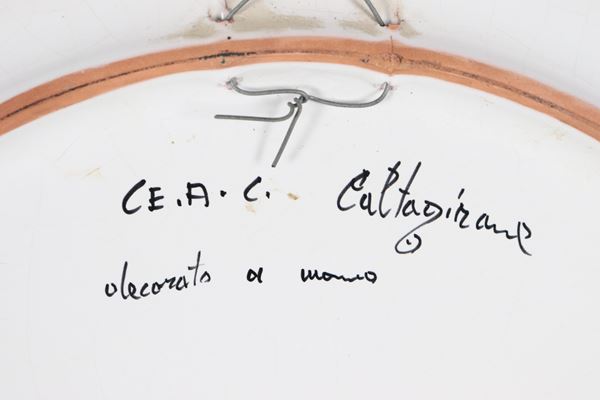 CE.A.C. Caltagirone
decorato a mano